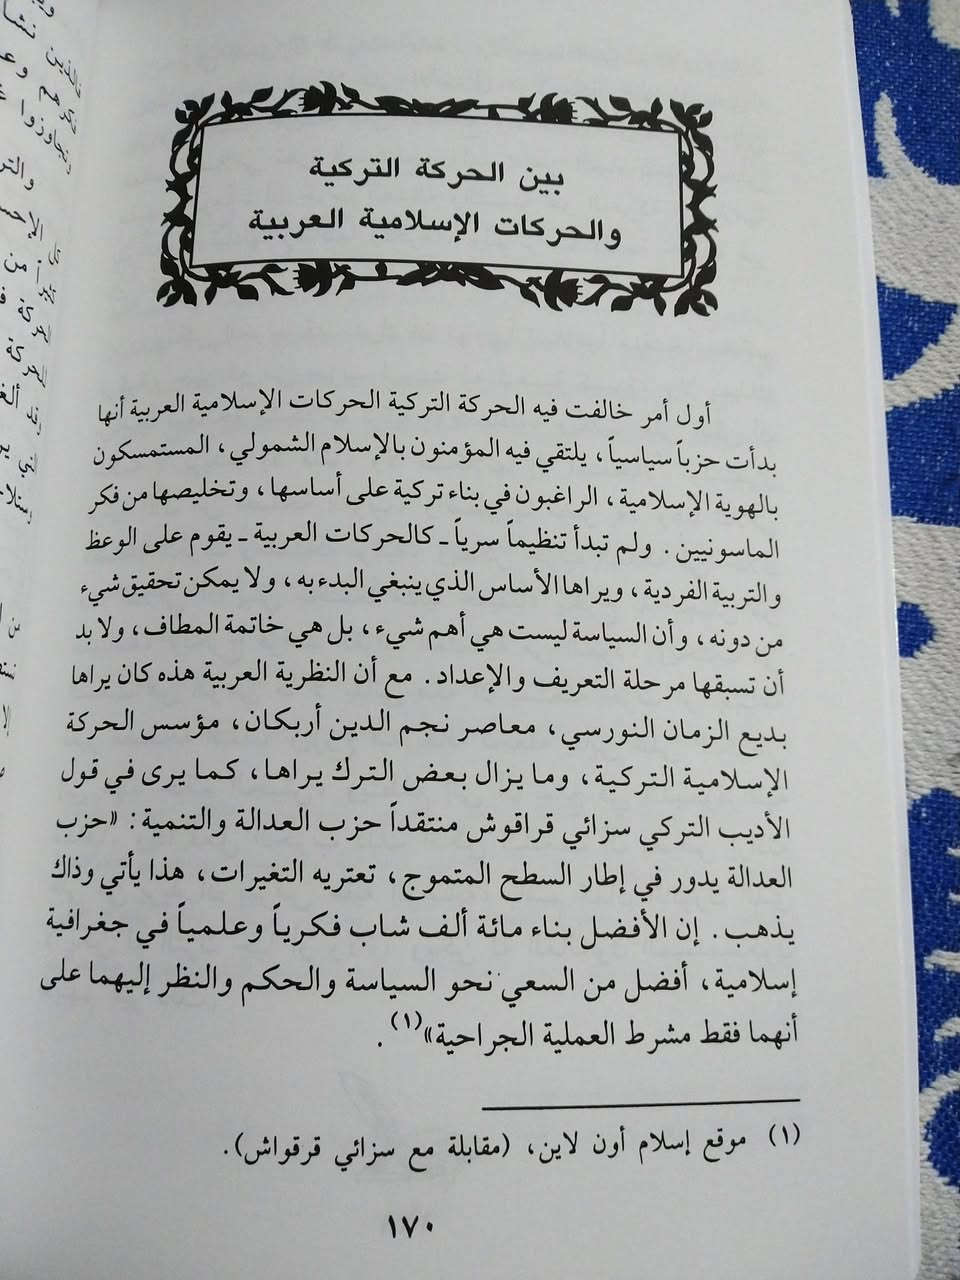 بين الحركة التركية
والحركات الإسلامية العربية
أول أمر خالفت فيه الحركة التركية الحركات الإسلامية العربية أنها
بدأت حزباً سياسياً، يلتقي فيه المؤمنون بالإسلام الشمولي، المستمسكون
بالهوية الإسلامية، الراغبون في بناء تركية على أساسها، وتخليصها من فكر
الماسونيين. ولم تبدأ تنظيماً سرياً ـ كالحركات العربية ـ يقوم على الوعظ
والتربية الفردية، ويراها الأساس الذي ينبغي البدء به، ولا يمكن تحقيق شيء
من دونه، وأن السياسة ليست هي أهم شيء، بل هي خاتمة المطاف، ولا بد
أن تسبقها مرحلة التعريف والإعداد. مع أن النظرية العربية هذه كان يراها
بديع الزمان النورسي، معاصر نجم الدين أربكان، مؤسس الحركة
الإسلامية التركية، وما يزال بعض الترك يراها، كما يرى في قول
الأديب التركي سزائي قراقوش منتقداً حزب العدالة والتنمية: «حزب
العدالة يدور في إطار السطح المتموج، تعتريه التغيرات، هذا يأتي وذاك
يذهب. إن الأفضل بناء مائة ألف شاب فكرياً وعلمياً في جغرافية
إسلامية، أفضل من السعي نحو السياسة والحكم والنظر إليهما على
أنهما فقط مشرط العملية الجراحية»(١).
(١) موقع إسلام أون لاين، (مقابلة مع سزائي قرقواش).
١٧٠